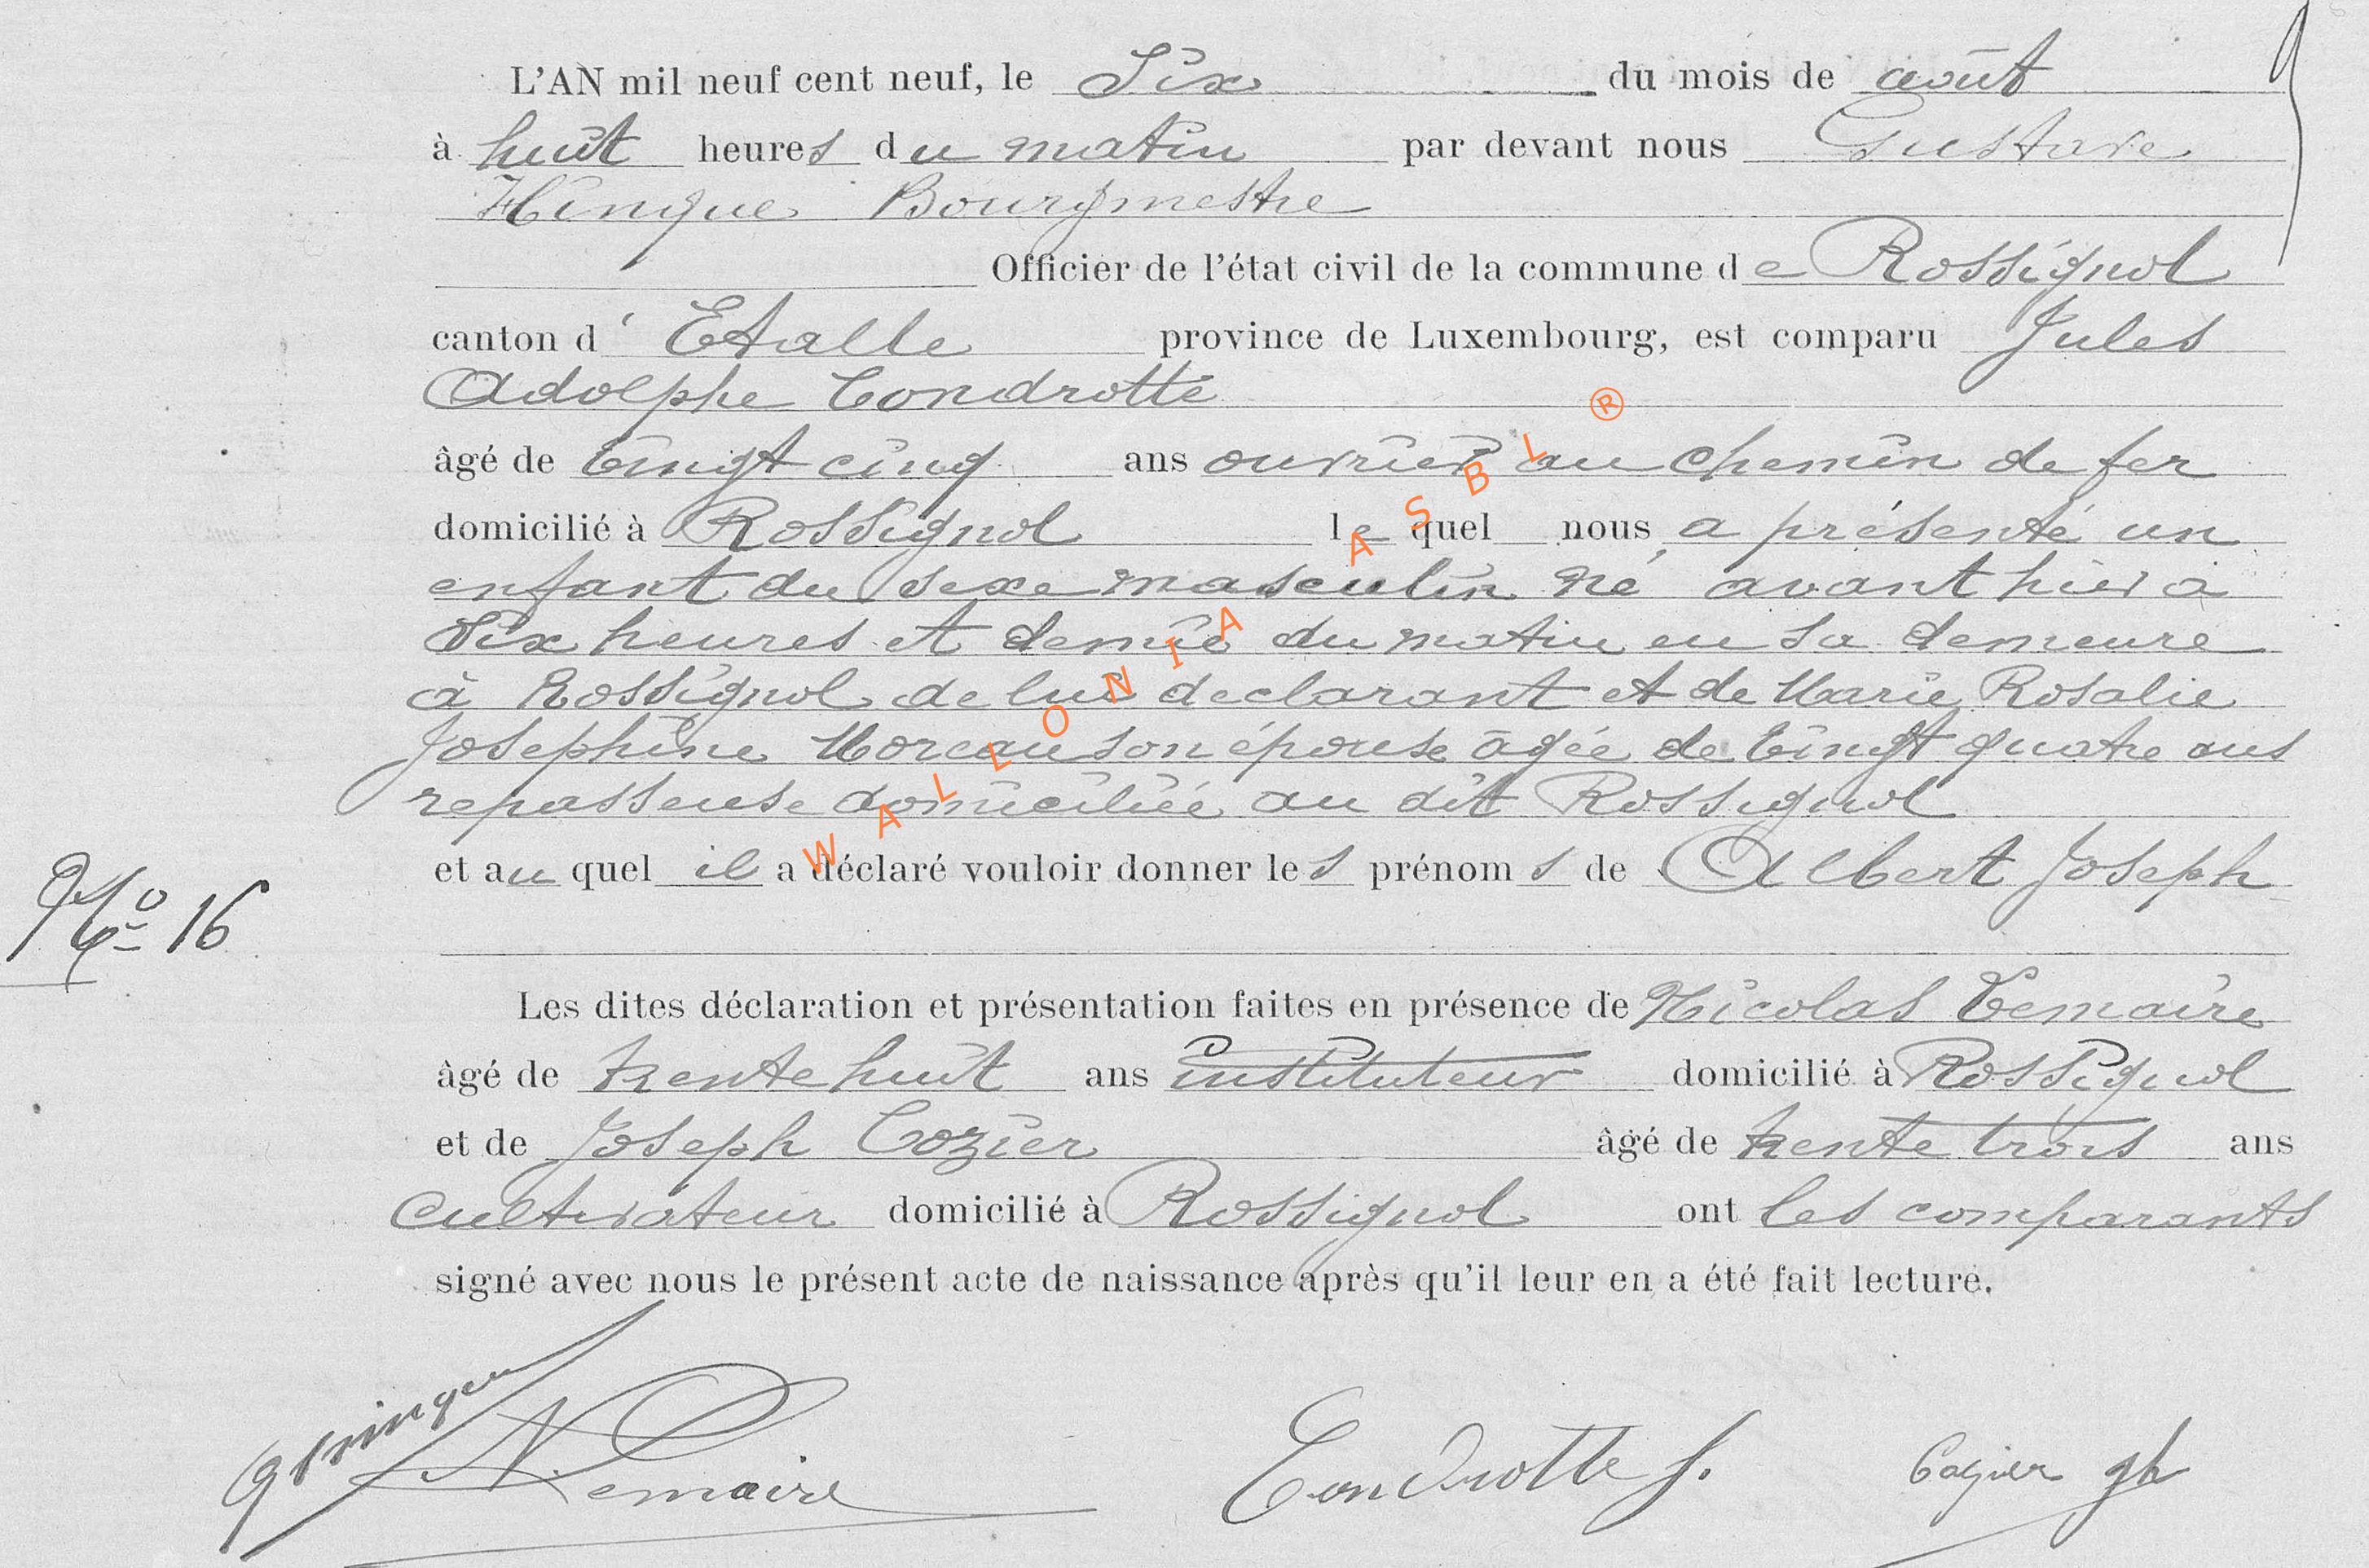 L'AN mil neuf cent neuf, le Six du mois de août
à huit heures du matin par devant nous Gustave
Hinque Bourgmestre
Officier de l'état civil de la commune de Rossignol
canton d' Etalle province de Luxembourg, est comparu Jules
Adolphe Condrotte
âgé de vingt cinq ans ouvrier au chemin de fer
domicilié à Rossignol lequel nous a présenté un
enfant du sexe masculin né avant hier à
Six heures et demie du matin en sa demeure
à Rossignol de lui declarant et de Marie Rosalie
Josephine Moreau son épouse agée de vingt quatre ans
repasseuse domiciliée au dit Rossignol
et au quel il a déclaré vouloir donner les prénoms de Albert Joseph
No 16
Les dites déclaration et présentation faites en présence de Nicolas Lemaire
âgé de trente huit ans instituteur domicilié à Rossignol
et de Joseph Cozier âgé de trente trois ans
cultivateur domicilié à Rossignol ont les comparants
signé avec nous le présent acte de naissance après qu'il leur en a été fait lecture.
GHinque N Lemaire Condrotte J. Cozier Jh
WALLONIA ASBL ®